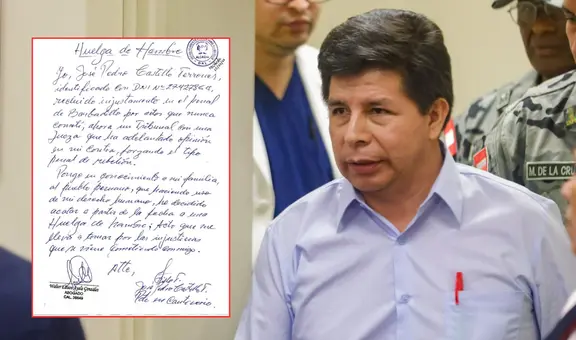 Huelga de Hambre
Yo, José Pedro Castillo Terrones,
identificado con DNI Nº 27427864,
recluido injustamente en el penal
de Barbadillo por actos que nunca
cometí, ahora un Tribunal con una
Jueza que ha adelantado opinión
en mi contra, forzando el tipo
penal de rebelión.
Pongo en conocimiento a mi familia,
al pueblo peruano, que haciendo uso
de mi derecho humano, he decidido
acatar a partir de la fecha a una
Huelga de Hambre; Acto que me
lleva a tomar por las injusticias
que se viene cometiendo conmigo.
Atte,
José Pedro Castillo T.
Pdte en Cautiverio.
ABOGADO
M. DE LA CRUZ
DE LA CRU